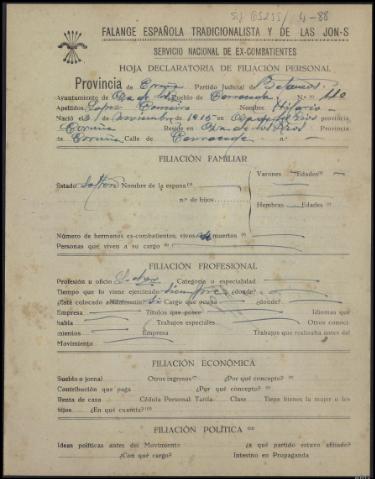 4-88
FALANGE ESPAÑOLA TRADICIONALISTA Y DE LAS JON-S
SERVICIO NACIONAL DE EX-COMBATIENTES
HOJA DECLARATORIA DE FILIACIÓN PERSONAL
Provincia de Coruña Partido Judicial de Betanzos
Ayuntamiento de Oza de los Ríos Pueblo de Cerrende N.º 110
Apellidos Lopez Nombre Hilario
Nació el de Noviembre de 1915 en Oza de los Ríos provincia
Coruña Reside en Oza de los Ríos Provincia
de Coruña Calle de n.º -
FILIACIÓN FAMILIAR
Estado Soltero Nombre de la esposa Varones Edades
n.º de hijos
Hembras Edades
Número de hermanos ex-combatientes, vivos muertos
Personas que viven a su cargo
FILIACIÓN PROFESIONAL
Profesión u oficio Labrador Categoría o especialidad
Tiempo que lo viene ejerciendo siempre ¿dónde?
¿Está colocado actualmente? Si Cargo que ocupa ¿dónde?
Empresa Títulos que posee Idiomas que
habla Trabajos especiales Otros conoci-
mientos Empresa Trabajos que realizaba antes del
Movimiento
FILIACIÓN ECONÓMICA
Sueldo o jornal Otros ingresos ¿Por qué concepto?
Contribución que paga ¿Por qué concepto?
Renta de casa Cédula Personal Tarifa Clase Tiene bienes la mujer o los
hijos ¿En qué cuantía?
FILIACIÓN POLÍTICA
Ideas políticas antes del Movimiento ¿a qué partido estuvo afiliado?
¿Con qué cargo? Intestino en Propaganda